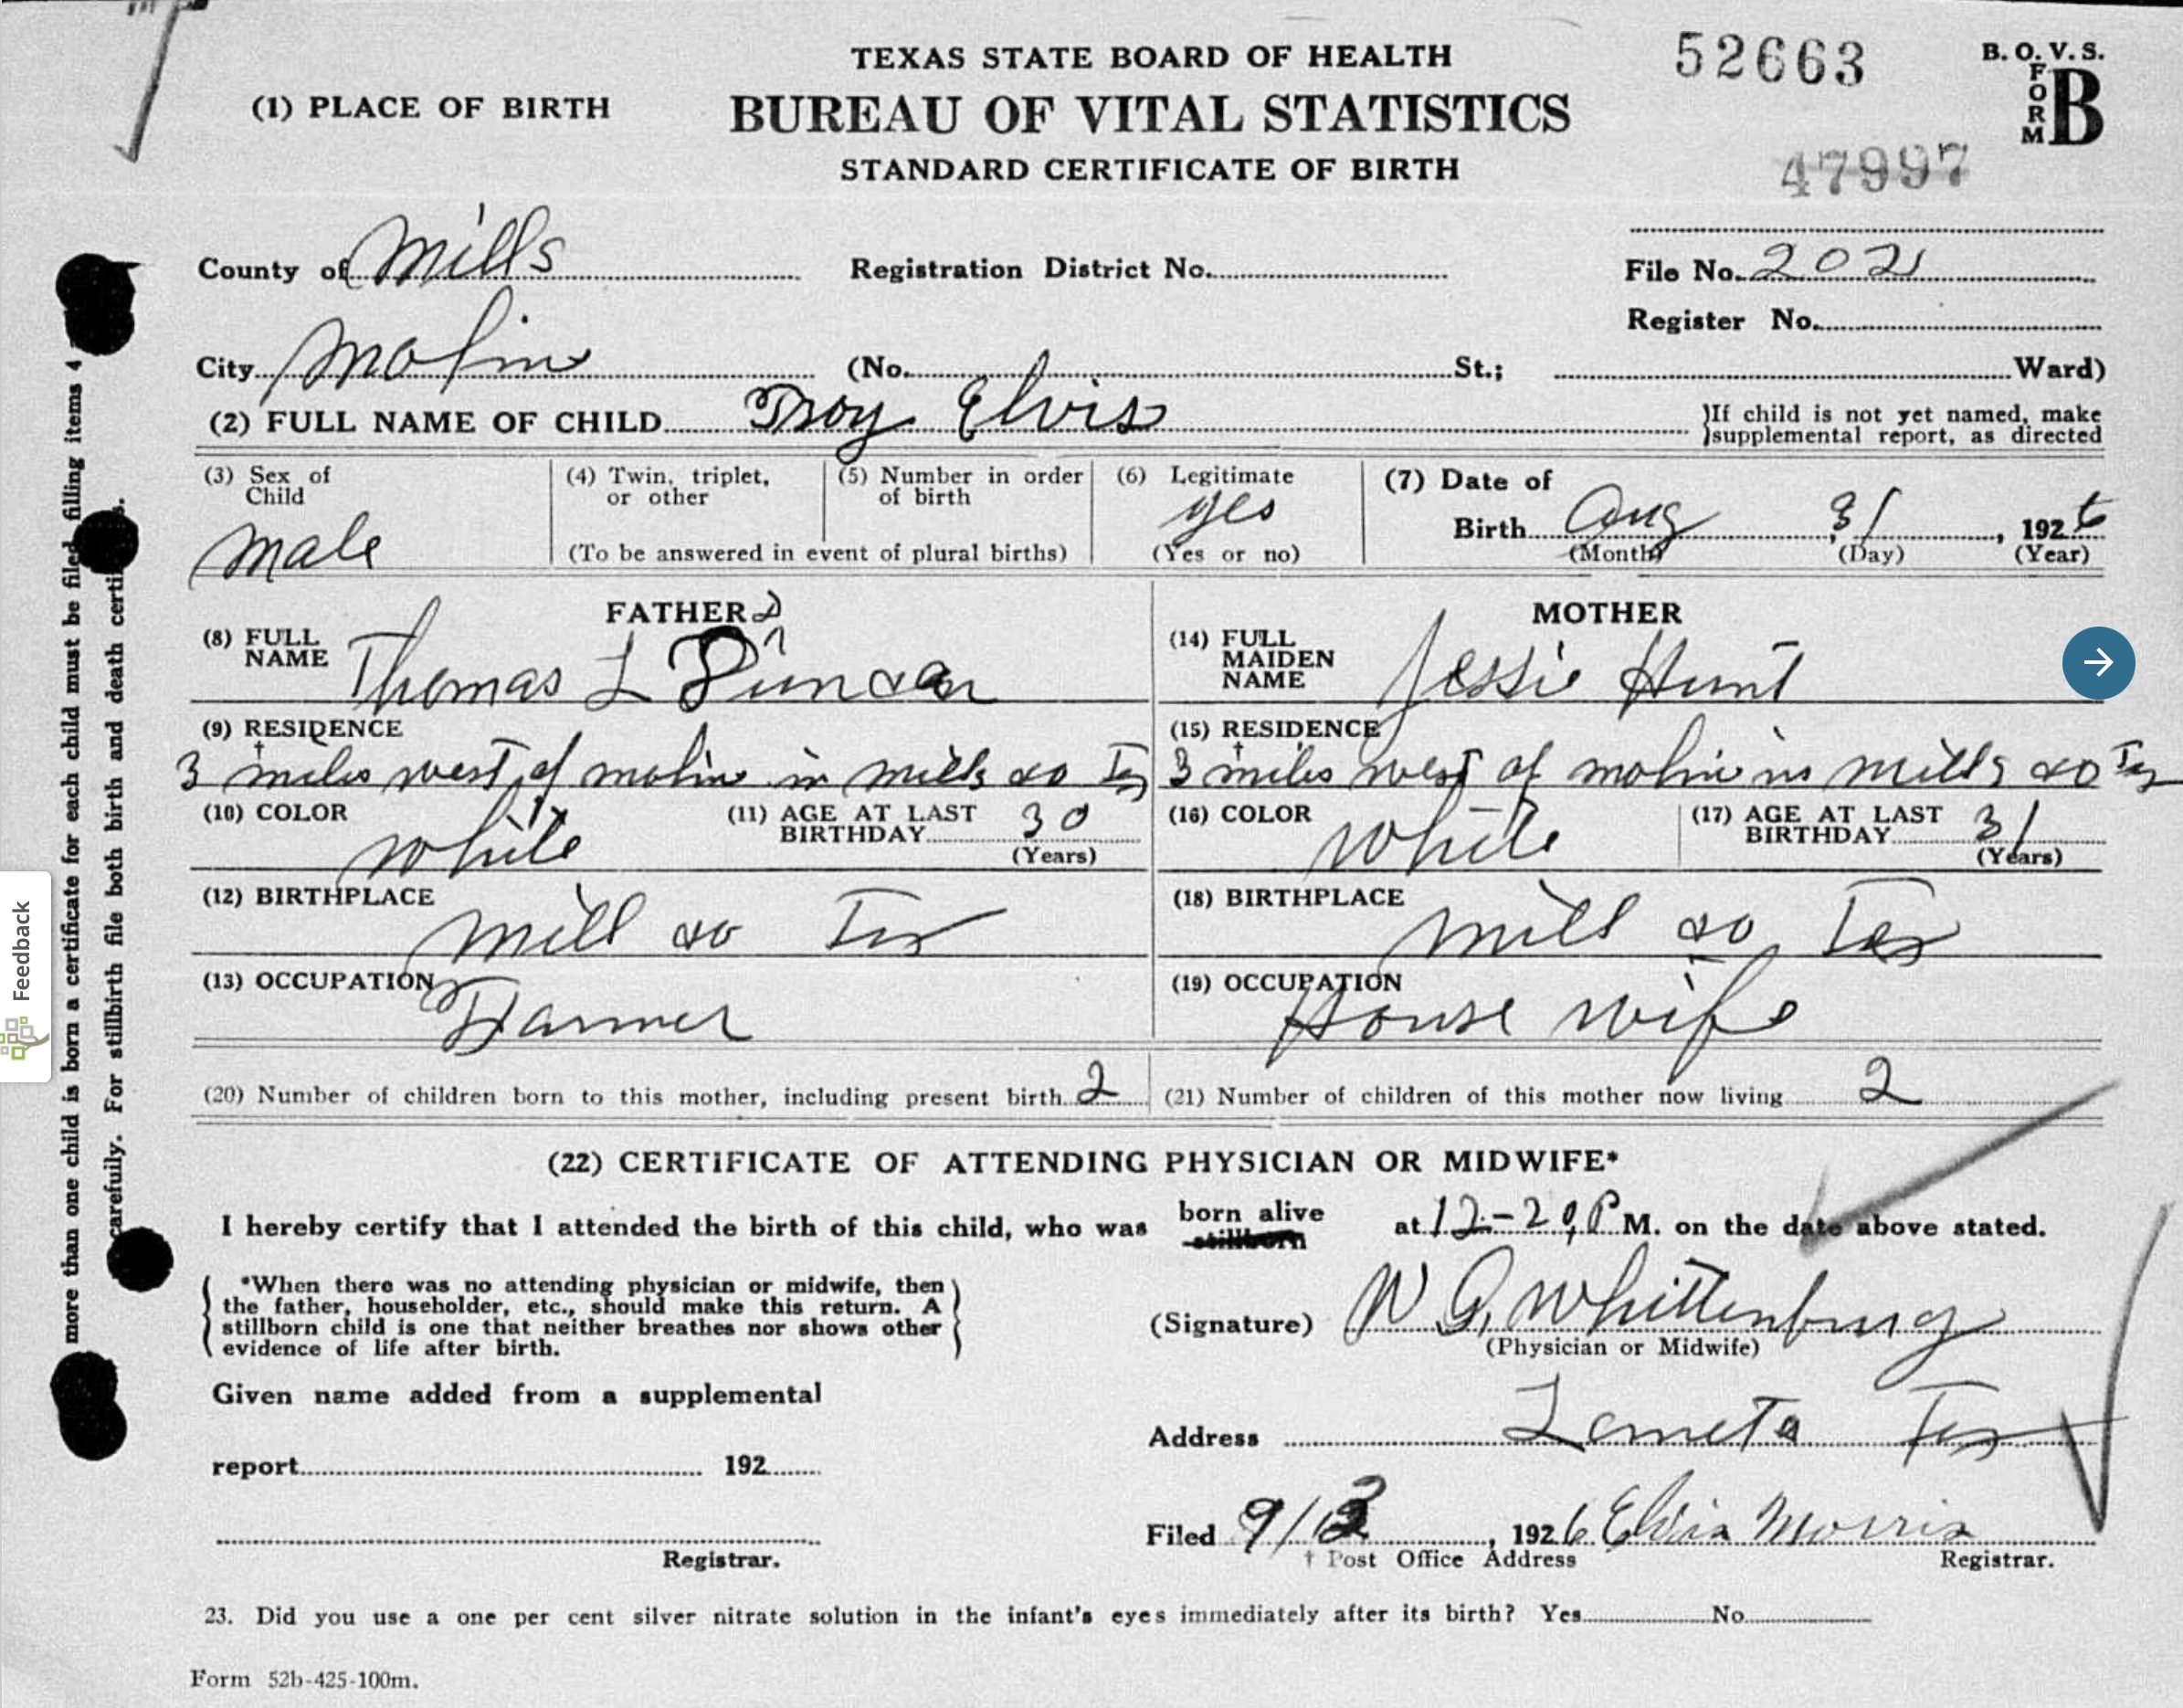 TEXAS STATE BOARD OF HEALTH
52663
B. O. V. S.
FORM B
(1) PLACE OF BIRTH
BUREAU OF VITAL STATISTICS
STANDARD CERTIFICATE OF BIRTH
47997
County of Mills Registration District No. File No. 2021
Register No.
City Molin (No. St.; Ward)
(2) FULL NAME OF CHILD Troy Elvis }If child is not yet named, make
}supplemental report, as directed
(3) Sex of Child male
(4) Twin, triplet, or other
(5) Number in order of birth
(To be answered in event of plural births)
(6) Legitimate yes
(Yes or no)
(7) Date of
Birth Aug 31, 1926
(Month) (Day) (Year)
FATHER D
(8) FULL NAME Thomas L Duncan
(9) RESIDENCE
† 3 miles west of molin in mills co Tex
(10) COLOR white (11) AGE AT LAST BIRTHDAY 30
(Years)
(12) BIRTHPLACE mill co Tex
(13) OCCUPATION Farmer
MOTHER
(14) FULL MAIDEN NAME Jessie Hunt
(15) RESIDENCE
† 3 miles west of molin in mills co Tex
(16) COLOR White (17) AGE AT LAST BIRTHDAY 31
(Years)
(18) BIRTHPLACE mill co Tex
(19) OCCUPATION House wife
(20) Number of children born to this mother, including present birth 2
(21) Number of children of this mother now living 2
(22) CERTIFICATE OF ATTENDING PHYSICIAN OR MIDWIFE*
I hereby certify that I attended the birth of this child, who was born alive stillborn at 12-20 P M. on the date above stated.
*When there was no attending physician or midwife, then
the father, householder, etc., should make this return. A
stillborn child is one that neither breathes nor shows other
evidence of life after birth.
(Signature) W G. Whittenburg
(Physician or Midwife)
Given name added from a supplemental
report 192
Registrar.
Address Lometa Tex
Filed 9/13, 1926 Elvis Morris
† Post Office Address Registrar.
23. Did you use a one per cent silver nitrate solution in the infant's eyes immediately after its birth? Yes No
Form 52b-425-100m.
more than one child is born a certificate for each child must be filed, filling items 4
carefully. For stillbirth file both birth and death certi s.
Feedback